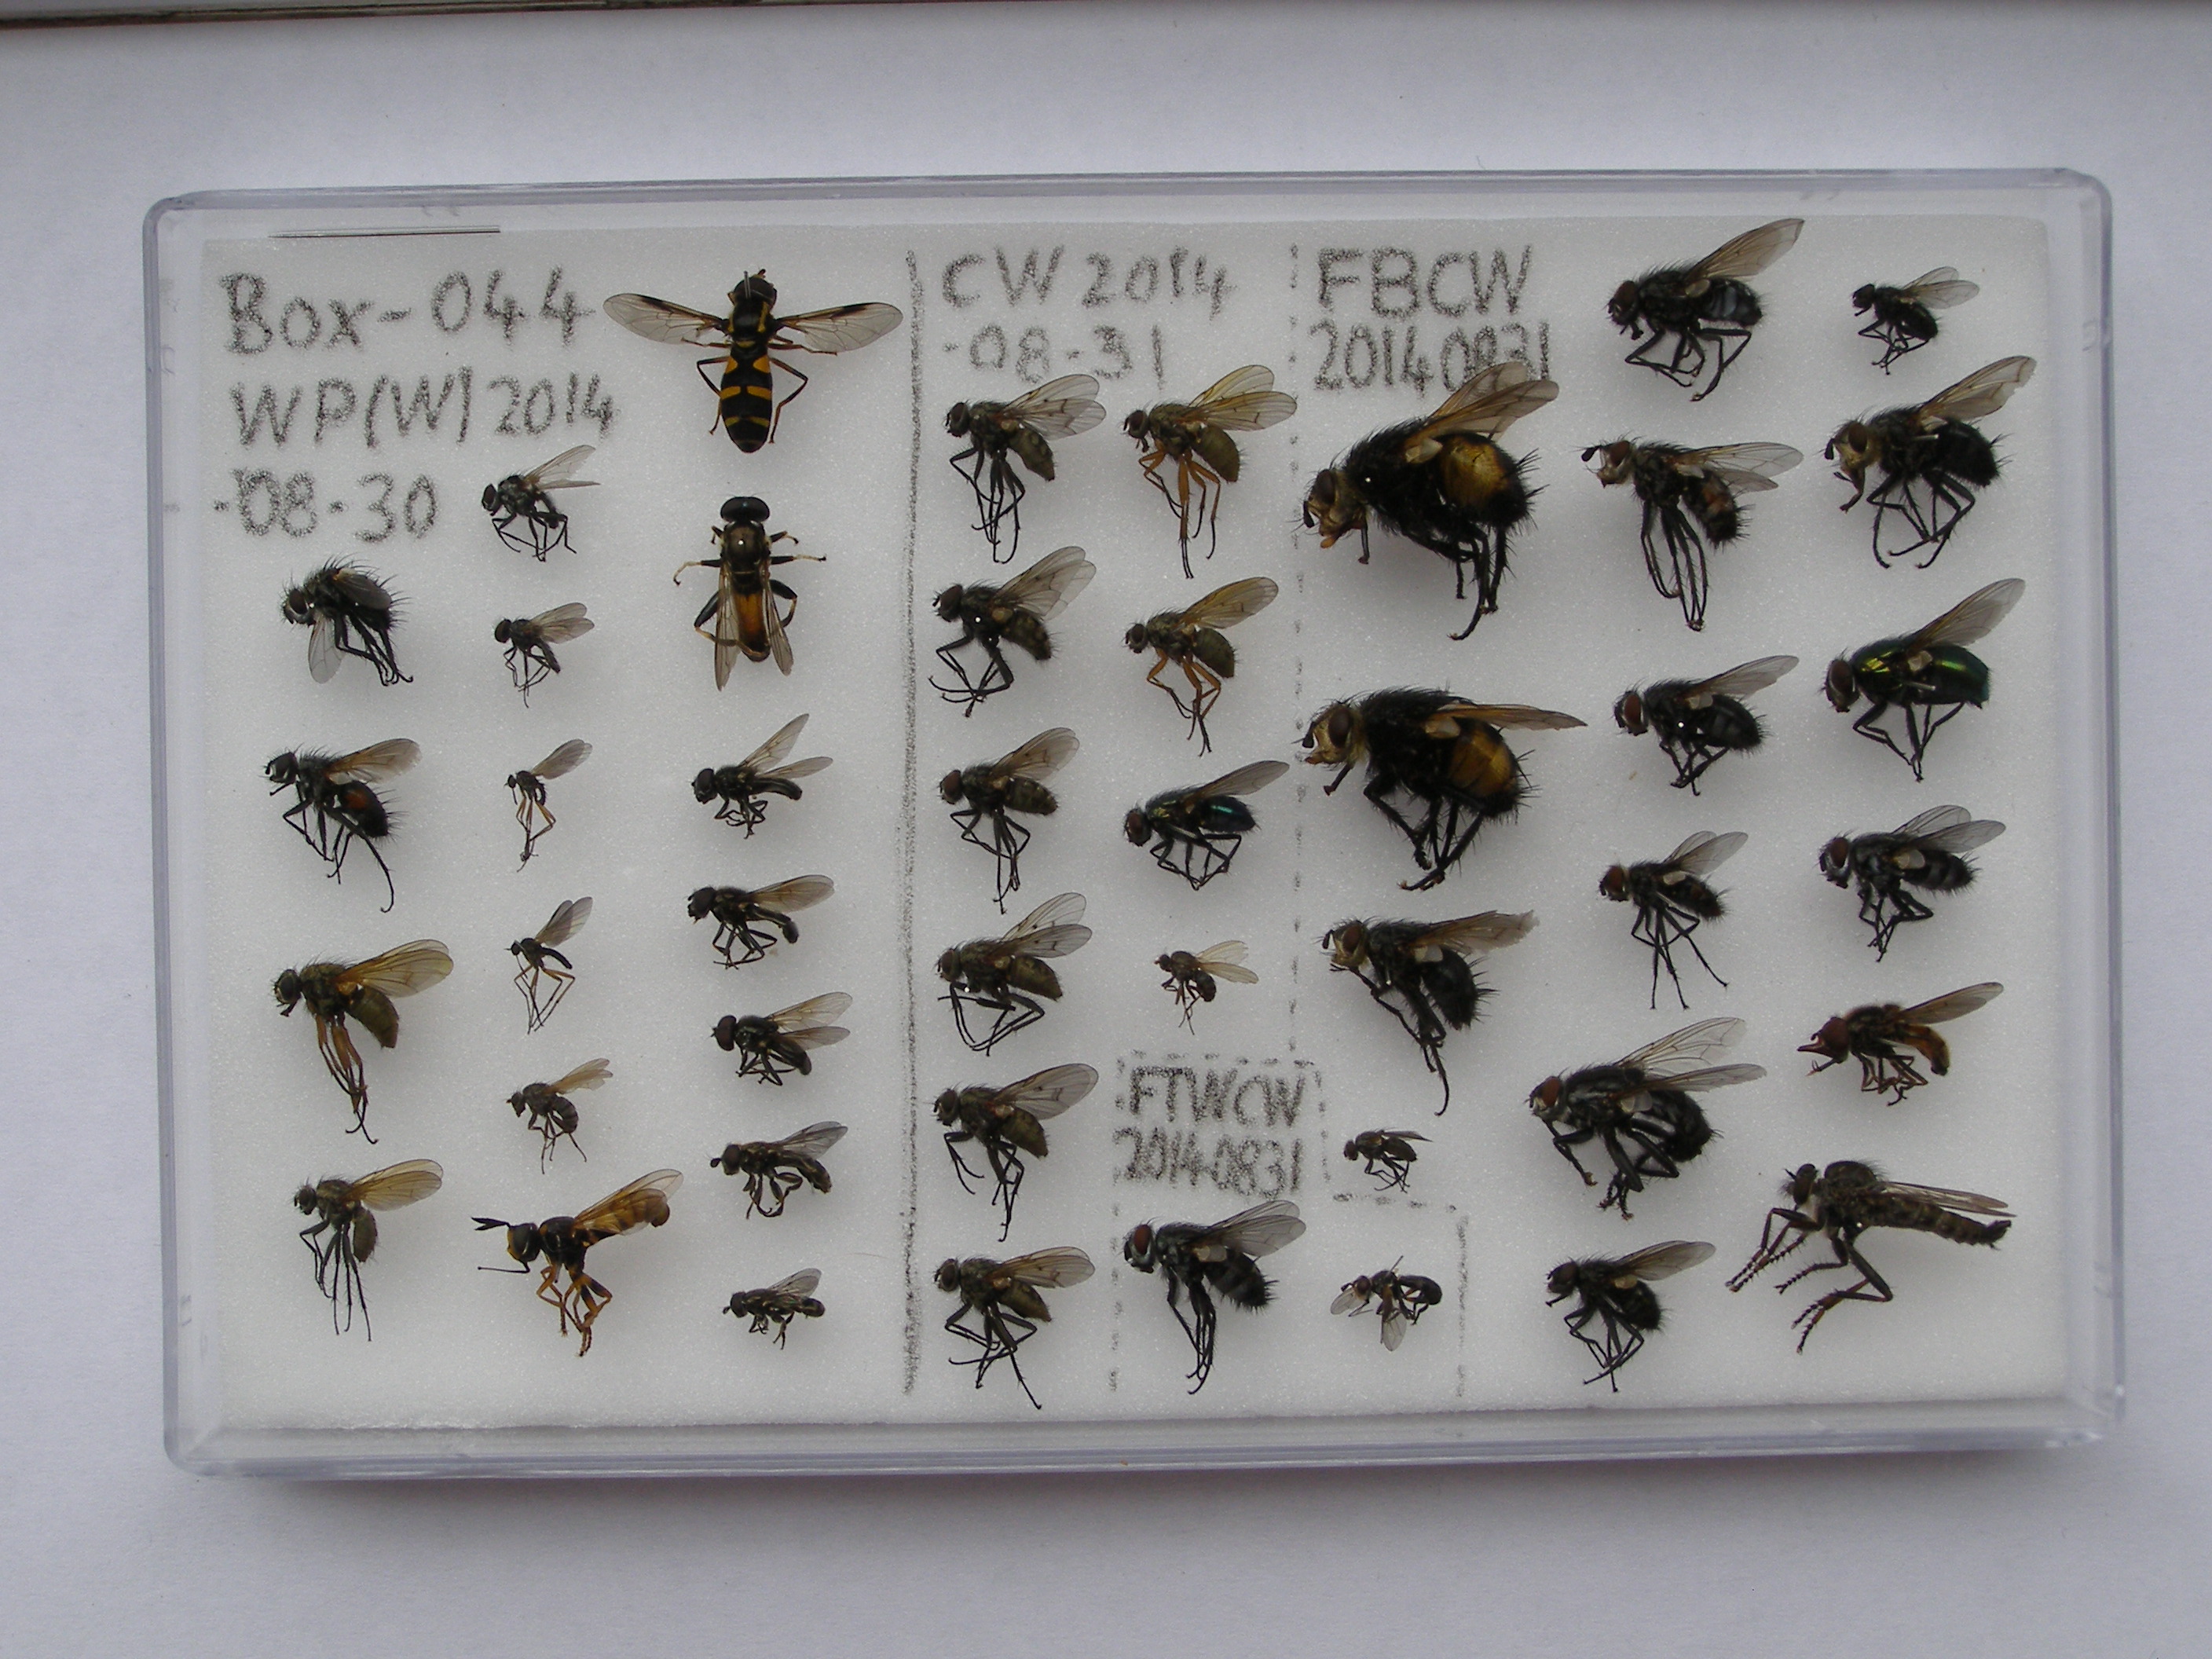 Box-044
WP(W) 2014
-08-30
CW 2014
-08-31
FBCW
20140831
FTWCW
20140831